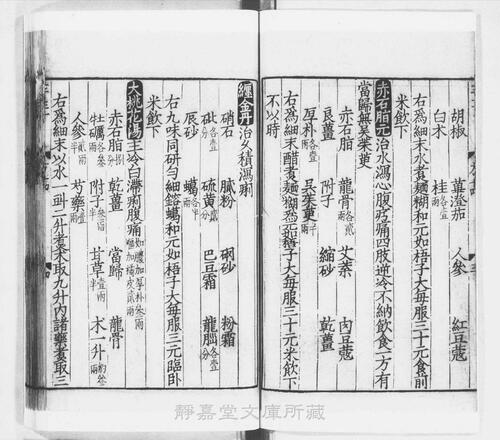 胡椒 蓽澄茄 人參 紅豆蔻
白术 桂各壹兩
右為細末水煮麵糊和元如梧子大每服三十元食前
米飲下
赤石脂元治水瀉心腹疼痛四肢逆冷不納飲食一方有
當歸無吳茱萸
赤石脂 龍骨各貳兩 艾葉 肉豆蔻
良薑 附子 縮砂 乾薑
厚朴各壹兩 吳茱萸半兩
右為細末醋煮麵糊為元如梧子大每服三十元米飲下
不以時
纏金丹治久積瀉痢
硝石 膩粉 硇砂 粉霜
砒各壹分 硫黃貳分 巴豆霜 龍腦各壹分
辰砂 蠟各半兩
右九味同研勻細鎔蠟和元如梧子大每服三元臨臥
米飲下
大桃花湯主冷白滯痢腹痛
赤石脂 乾薑 當歸 龍骨
牡蠣各叁兩 附子貳兩 甘草壹兩 朮一升
人參壹兩半 芍藥壹兩
右為細末以水一㪷二升煮朮取九升內諸藥煮取三
靜嘉堂文庫所藏